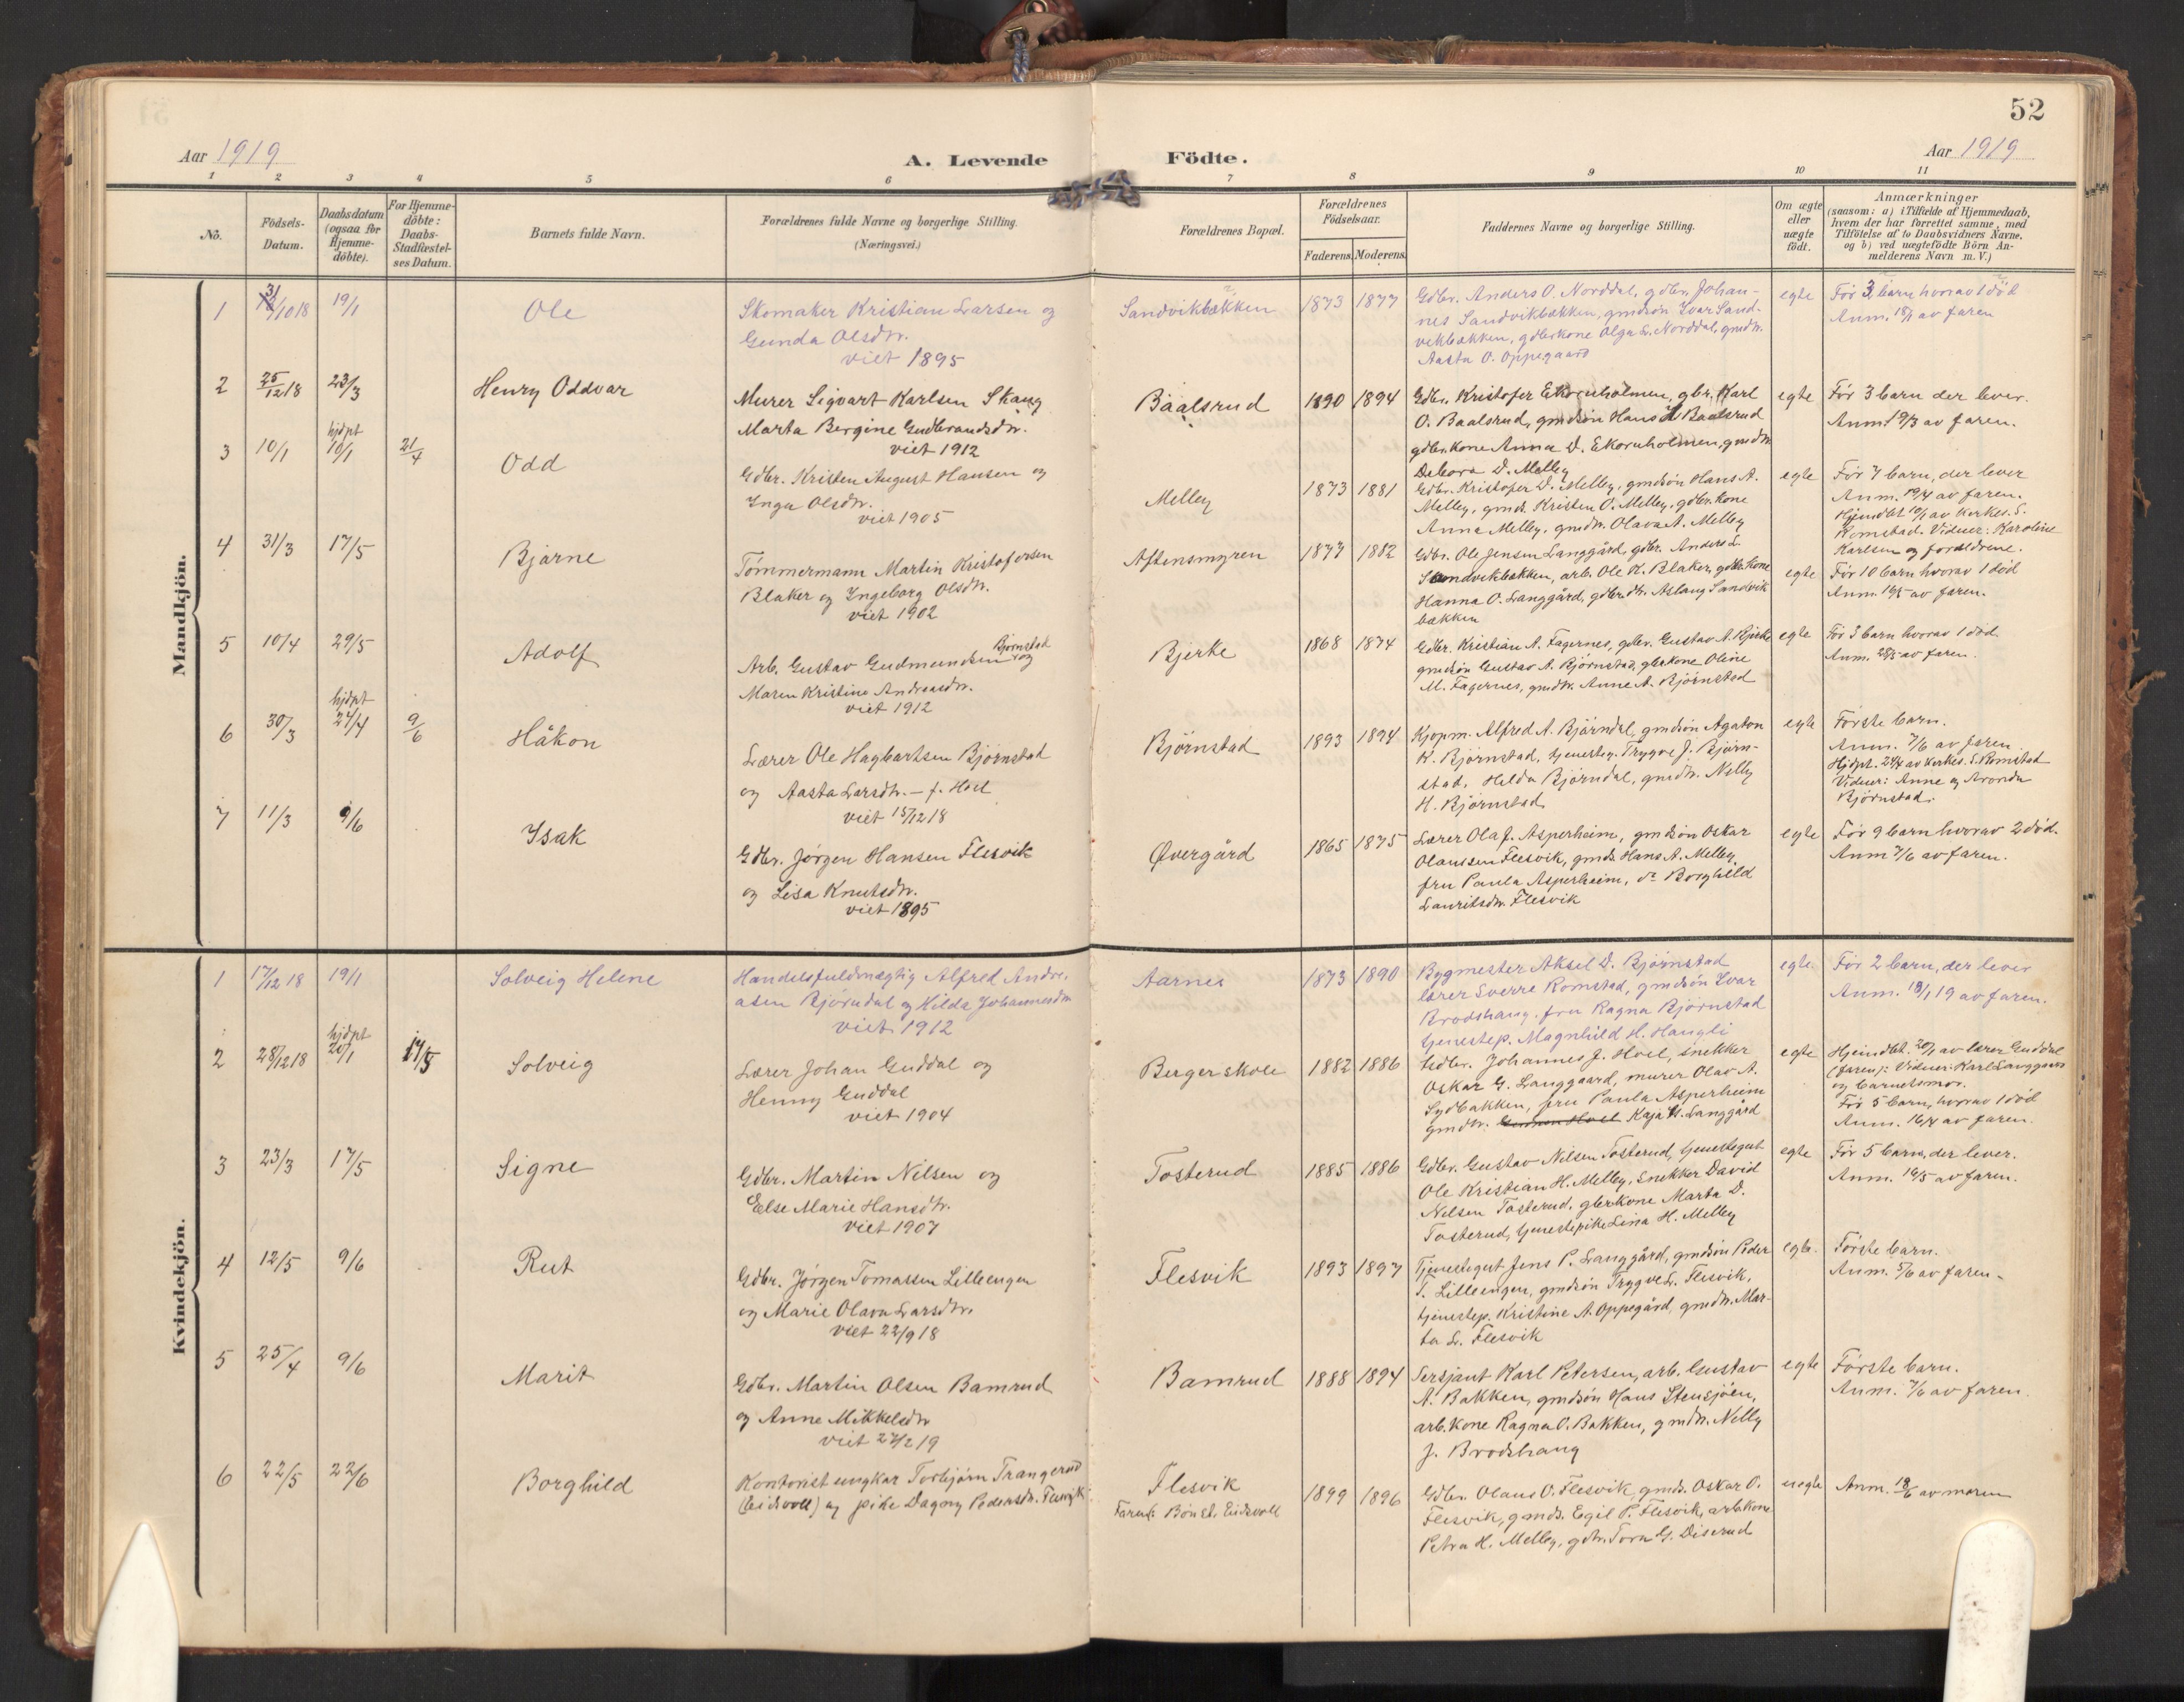 52
Aar 1919
A. Levende
Födte.
Aar 1919
1 2 3 4 5 6 7 8 9 10 11
No.
Födsels-
Datum.
Daabsdatum
(ogsaa for
Hjemme-
döbte).
For Hjemme-
döbte:
Daabs-
Stadfæstel-
ses Datum.
Barnets fulde Navn.
Forældrenes fulde Navne og borgerlige Stilling.
(Næringsvei.)
Forældrenes Bopæl.
Forældrenes
Födselsaar.
Faderens. Moderens.
Faddernes Navne og borgerlige Stilling.
Om ægte
eller
uægte
födt.
Anmærkninger
(saasom: a) i Tilfælde af Hjemmedaab,
hvem der har forrettet samme, med
Tilföielse af to Daabsvidners Navne,
og b) ved uægtefödte Börn An-
melderens Navn m. V.)
Mandkjön.
1
31/10 18
19/1
Ole
Skomaker Kristian Larsen og
Gunda Olsdtr.
viet 1895
Sandvikbækken
1873 1877
Gdbr. Anders O. Norddal, gdbr. Johan-
nes Sandvikbækken, gmdsön Ivar Sand-
vikbækken, gdbrkone Olga L. Norddal, gmdtr.
Aasta O. Oppegaard
egte
För 3 barn hvorav 1 död
Anm. 18/1 av faren
2
25/12 18
23/3
Henry Oddvar
Murer Sigvart Karlsen Skaug
Marta Bergine Gudbrandsdtr.
viet 1912
Baalsrud
1890 1894
Gdbr. Kristofer Ekornholmen, gbr. Karl
O. Baalsrud, gmdsön Hans K Baalsrud
gdbr.kone Anna D. Ekornholmen, gmdtr.
Debora D. Melby
egte
För 3 barn der lever.
Anm. 19/3 av faren.
3
10/1
hjdpt
10/1
21/4
Odd
Gdbr. Kristen August Hansen og
Inga Olsdtr.
viet 1905
Melby
1873 1881
Gdbr. Kristofer D. Melby, gmdsön Hans A.
Melby, gmds. Kristen O. Melby, gdbr.kone
Anna Melby, gmdtr. Olava A. Melby
egte
För 7 barn, der lever
Anm. 19/4 av faren.
Hjemdbt. 10/1 av kirkes. S.
Romstad. Vidner: Karoline
Karlsen og forældrene.
4
31/3
17/5
Bjarne
Tömmermann Martin Kristofersen
Blaker og Ingeborg Olsdtr.
viet 1902
Aftensmyren
1877 1882
Gdbr. Ole Jensen Langgård, gdbr. Anders L.
Sandvikbækken, arb. Ole K. Blaker, gdbr.kone
Hanna O. Langgård, gdbr.dtr. Aslaug Sandvik
bækken
egte
För 10 barn hvorav 1 död
Anm. 16/5 av faren.
5
10/4
29/5
Adolf
Arb. Gustav Gudmundsen Bjørnstad og
Maren Kristine Andreasdtr.
viet 1912
Bjerke
1868 1874
Gdbr. Kristian A. Fagernes, gdbr. Gustav A. Bjerke
gmdsön Gustav A. Björnstad, gbrkone Oline
M. Fagernes, gmdtr. Anne A. Björnstad
egte
För 3 barn hvorav 1 död.
Anm. 28/5 av faren.
6
30/3
hjdpt
24/4
9/6
Håkon
Lærer Ole Hagbartsen Björnstad
og Aasta Larsdtr. – f. Hoel
viet 15/12 18
Björnstad
1893 1894
Kjøpm. Alfred A. Björndal, gmdsön Agaton
K. Björnstad, tjenesteg. Trygve J. Björn-
stad, Hilda Björndal, gmdtr. Nelly
H. Björnstad.
egte
Förste barn.
Anm. 7/6 av faren
Hjdpt. 24/4 av kirkes. S. Romstad
Vidner: Anne og Aronda
Bjørnstad.
7
11/3
9/6
Isak
Gdbr. Jörgen Hansen Flesvik
og Lisa Knutsdtr.
viet 1895
Øvergård
1865 1875
Lærer Olaf J. Asperheim, gmdsön Oskar
Olaussen Flesvik, gmds. Hans A. Melby,
fru Paula Asperheim, do Borghild
Lauritsdtr. Flesvik
egte
För 9 barn hvorav 2 död.
Anm 7/6 av faren.
Kvindekjön.
1
17/12 18
19/1
Solveig Helene
Handelsfuldmægtig Alfred Andre-
asen Björndal og Hilda Johannesdtr
viet 1912
Aarnes
1873 1890
Bygmester Aksel D. Björnstad
lærer Sverre Romstad, gmdsön Ivar
Brodshaug, fru Ragna Björnstad
tjenestep. Magnhild H. Haugli
egte
För 2 barn, der lever
Anm. 18/1 19 av faren.
2
28/12 18
hjdpt
20/1
17/5
Solveig
Lærer Johan Guddal og
Henny Guddal
viet 1904
Berger skole
1882 1886
Gdbr. Johannes J. Hoel, snekker
Oskar G. Langgaard, murer Olav A.
Sydbakken, fru Paula Asperheim
gmdtr. Kaja K. Langgård
egte
Hjemdbt. 20/1 av lærer Guddal
(faren): Vidner: Karl Langgaard
og barnets mor.
För 5 barn, hvorav 1 död
Anm. 16/4 av faren.
3
23/3
17/5
Signe
Gdbr. Martin Nilsen og
Else Marie Hansdtr.
viet 1907
Tosterud
1885 1886
Gdbr. Gustav Nilsen Tosterud, tjenestegut
Ole Kristian H. Melby, snekker David
Nilsen Tosterud, gbrkone Marta D.
Tosterud, tjenestepike Lina H. Melby
egte
För 5 barn, der lever.
Anm. 16/5 av faren.
4
12/5
9/6
Rut
Gdbr. Jørgen Tomassen Lilleengen
og Marie Olava Larsdtr.
viet 22/9 18
Flesvik
1893 1897
Tjenestegut Jens P. Langgård, gmdsön Peder
T. Lilleengen, gmdsön Trygve L. Flesvik,
tjenestep. Kristine A. Oppegård, gmdtr. Mar-
ta L. Flesvik
egte.
Förste barn.
Anm. 5/6 av faren.
5
25/4
9/6
Marit
Gdbr. Martin Olsen Bamrud
og Anne Mikkelsdtr
viet 27/2 19
Bamrud
1888 1894
Sersjant Karl Petersen, arb. Gustav
A. Bakken, gmdsön Hans Stensjöen,
arb.kone Ragna O. Bakken, gmdtr. Nelly
J. Brodshaug
egte
Förste barn.
Anm. 7/6 av faren.
6
22/5
22/6
Borghild
Kontorist ungkar Torbjørn Trangerud
(Eidsvoll) og pike Dagny Pedersdtr. Flesvik
Flesvik
Faren: Bön st. Eidsvoll
1899 1896
Gdbr. Olaus O. Flesvik, gmds. Oskar O.
Flesvik, gmds. Egil P. Flesvik, arb.kone
Petra H. Melby, gdtr. Tora G. Diserud
uegte
Anm. 18/6 av moren